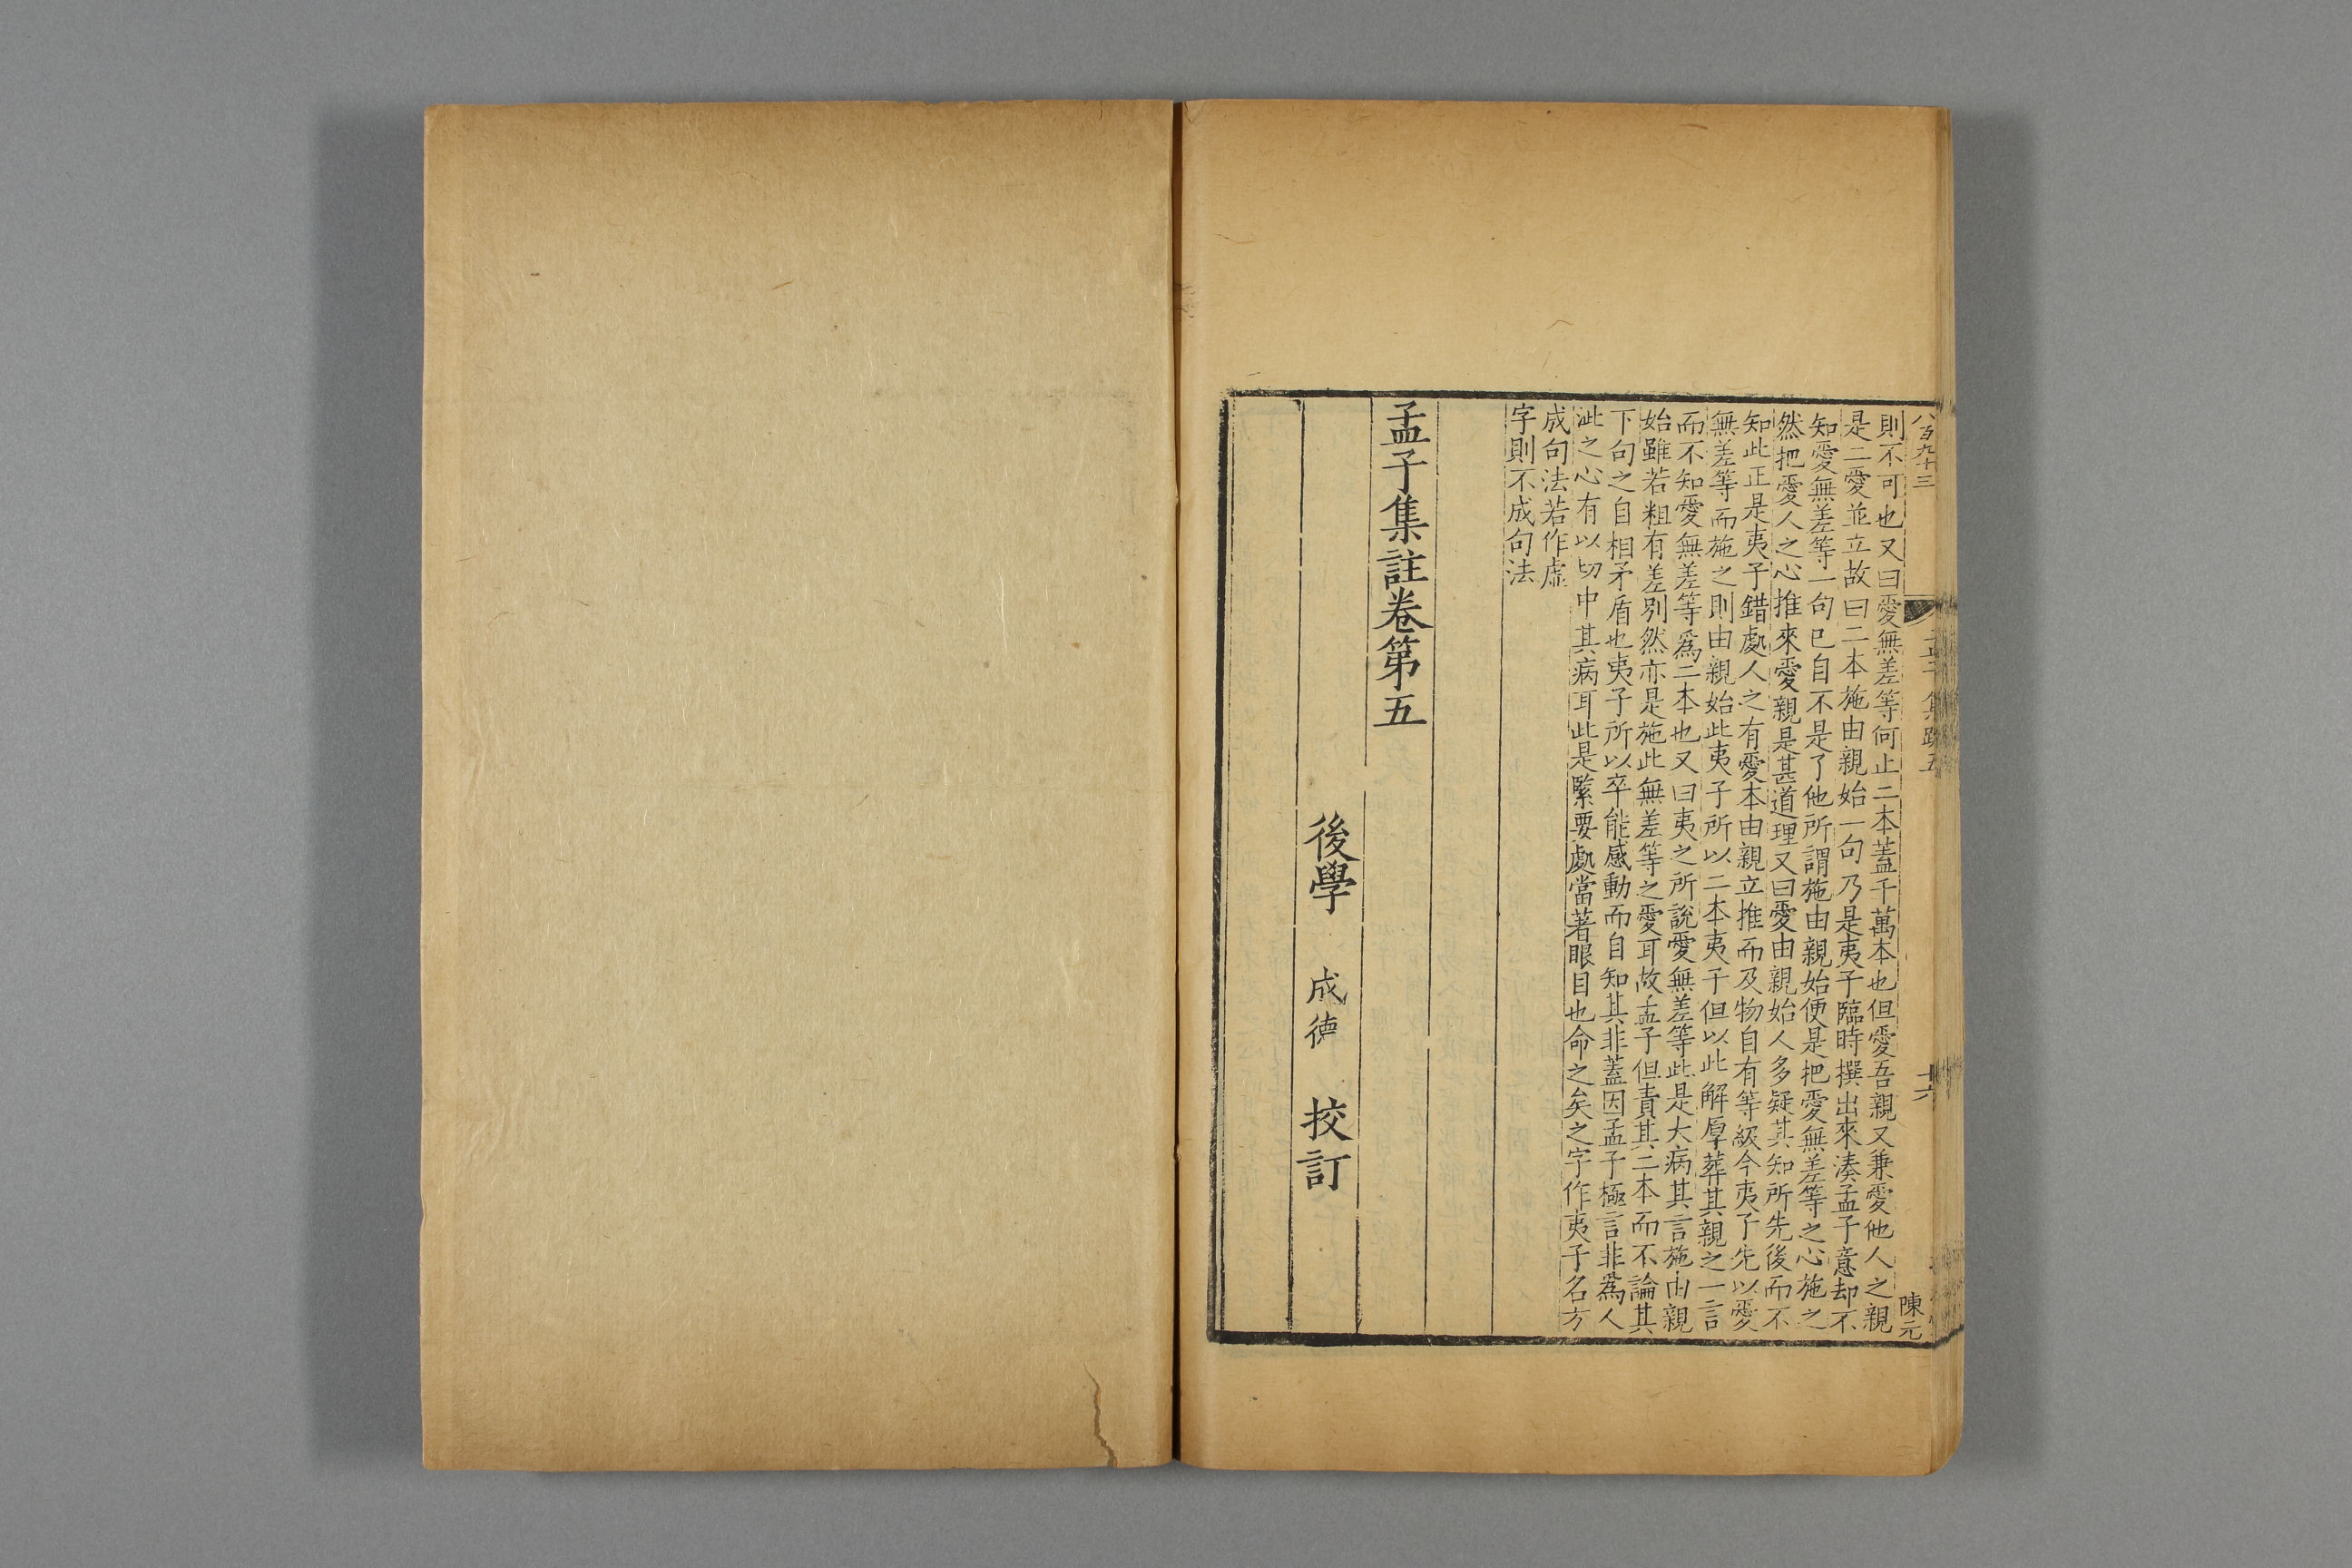 八百九十三
孟子集疏五
十六
陳元
則不可也又曰愛無差等何止二本蓋千萬本也但愛吾親又兼愛他人之親
是二愛並立故曰二本施由親始一句乃是夷子臨時撰出來湊孟子意却不
知愛無差等一句已自不是了他所謂施由親始便是把愛無差等之心施之
然把愛人之心推來愛親是甚道理又曰愛由親始人多疑其知所先後而不
知此正是夷子錯處人之有愛本由親立推而及物自有等級今夷子先以愛
無差等而施之則由親始此夷子所以二本夷子但以此解厚葬其親之一言
而不知愛無差等爲二本也又曰夷之所說愛無差等此是大病其言施由親
始雖若粗有差別然亦是施此無差等之愛耳故孟子但責其二本而不論其
下句之自相矛盾也夷子所以卒能感動而自知其非蓋因孟子極言非爲人
泚之心有以切中其病耳此是緊要處當著眼目也命之矣之字作夷子名方
成句法若作虛
字則不成句法
孟子集註卷第五
後學 成德 挍訂